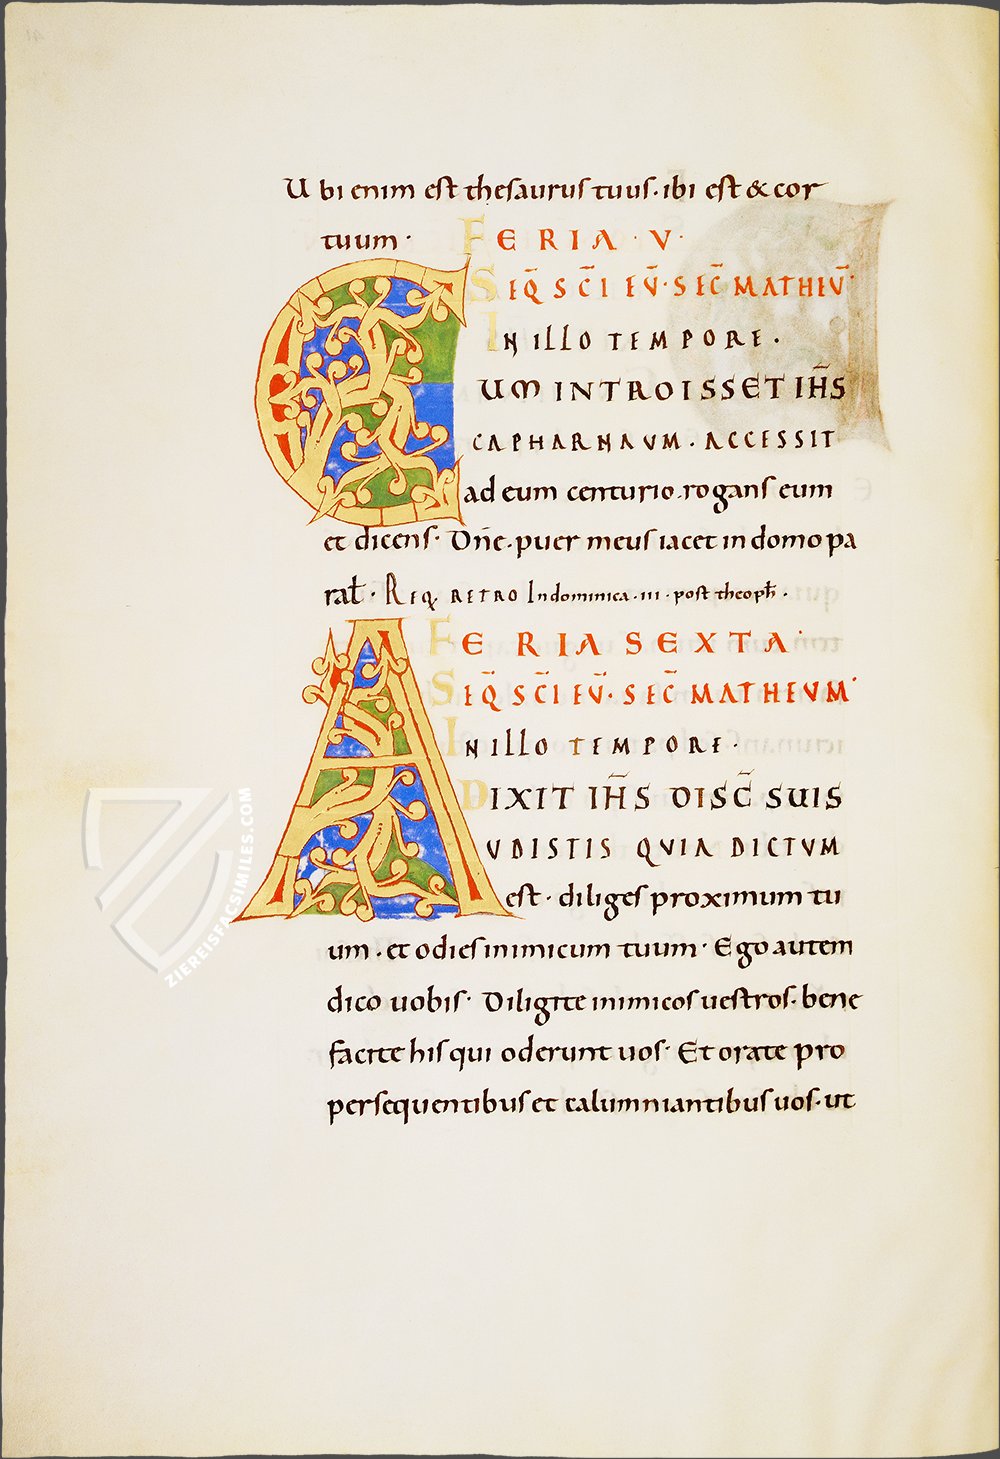 Ubi enim est thesaurus tuus· ibi est & cor
tuum · FERIA · V·
SEQ̄ SC̄I EV̄· SEC̄ MATHEV̄·
IN ILLO TEMPORE·
CUM INTROISSET IHS̄
CAPHARNAUM · ACCESSIT
ad eum centurio· rogans eum
et dicens· Dn̄e· puer meus iacet in domo pa
ral̄· REQ RETRO In dominica · iii · post theoph̄·
FERIA SEXTA·
SEQ̄ SC̄I EV̄· SEC̄ MATHEVM·
IN ILLO TEMPORE·
DIXIT IH̄S DISC̄ SUIS
AVDISTIS QVIA DICTVM
est· diliges proximum tu
um· et odies inimicum tuum· Ego autem
dico uobis· Diligite inimicos uestros· bene
facite his qui oderunt uos· Et orate pro
persequentibus et calumniantibus uos· ut
ZIEREISFACSIMILES.COM